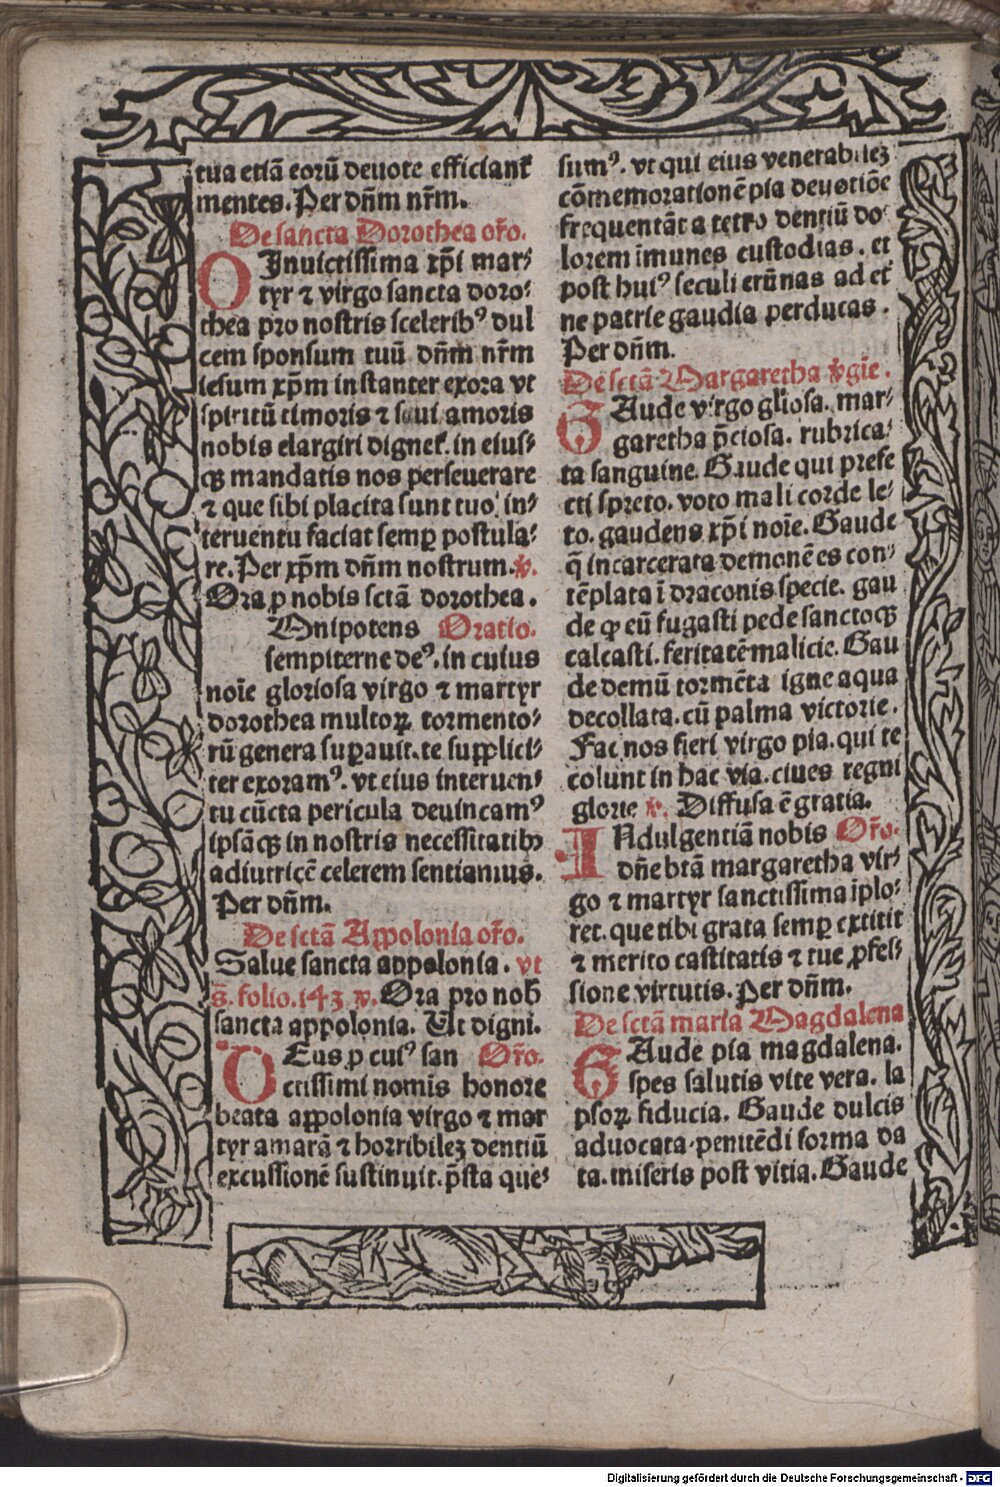 tua etiā eorū deuote efficiant᷑
mentes. Per dn̄m nr̄m.
De sancta Dorothea or̄o.
O Inuictissima xp̄i mar⸗
tyr ⁊ virgo sancta doro⸗
thea pro nostris scelerib⁹ dul
cem sponsum tuū dn̄m nr̄m
iesum xp̄m instanter exora vt
spiritū timoris ⁊ sui amoris
nobis elargiri dignet᷑. in eius⸗
qꝫ mandatis nos perseuerare
⁊ que sibi placita sunt tuo in⸗
teruentu faciat semꝑ postula⸗
re. Per xp̄m dn̄m nostrum. ℣.
Ora ꝓ nobis sctā dorothea.
Omnipotens Oratio.
sempiterne de⁹. in cuius
noīe gloriosa virgo ⁊ martyr
dorothea multoꝝ tormento⸗
rū genera suꝑauit. te supplici⸗
ter exoram⁹. vt eius interuen⸗
tu cūcta pericula deuincam⁹
ipsāqꝫ in nostris necessitatibꝫ
adiutricē celerem sentiamus.
Per dn̄m.
De sctā Appolonia or̄o.
Salue sancta appolonia. vt
s̄. folio. 143 ℣. Ora pro nob
sancta appolonia. Ut digni.
DEus ꝓ cui⁹ san Or̄o.
ctissimi nomīs honore
beata appolonia virgo ⁊ mar
tyr amarā ⁊ horribileꝫ dentiū
excussionē sustinuit. p̄sta que⸗
sum⁹. vt qui eius venerabileꝫ
cōmemorationē pia deuotiōe
frequentāt a tetro dentiū do⸗
lorem īmunes custodias. et
post hui⁹ seculi erūnas ad et᷑
ne patrie gaudia perducas.
Per dn̄m.
De sctā Margaretha v̄gīe.
GAude virgo gl̄iosa. mar⸗
garetha p̄ciosa. rubrica⸗
ta sanguine. Gaude qui prefe
cti spreto. voto mali corde le⸗
to. gaudens xp̄i noīe. Gaude
q̄ incarcerata demonē es con⸗
tēplata ī draconis specie. gau
de ꝙ eū fugasti pede sanctoqꝫ
calcasti. feritatē malicie. Gau
de demū tormēta igne aqua
decollata. cū palma victorie.
Fac nos fieri virgo pia. qui te
colunt in hac via. ciues regni
glorie ℣. Diffusa ē gratia.
INdulgentiā nobis Or̄o.
dn̄e btā margaretha vir⸗
go ⁊ martyr sanctissima īplo⸗
ret. que tibi grata semꝑ extitit
⁊ merito castitatis ⁊ tue ꝓfes⸗
sione virtutis. Per dn̄m.
De sctā maria Magdalena
GAude pia magdalena.
spes salutis vite vera. la
psoꝝ fiducia. Gaude dulcis
aduocata. penitēdi forma da
ta. miseris post vitia. Gaude
Digitalisierung gefördert durch die Deutsche Forschungsgemeinschaft - DFG